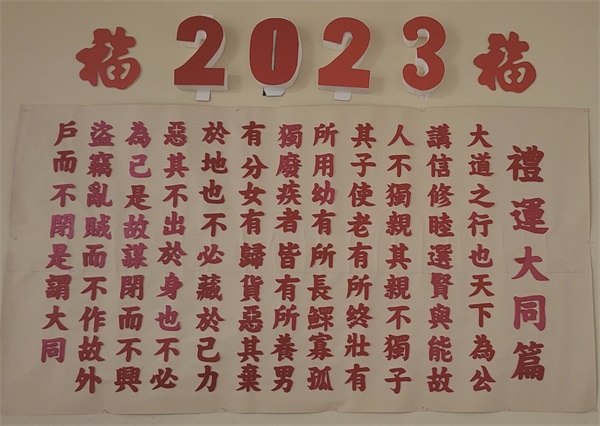 福 2023 福
禮運大同篇
大道之行也天下為公
講信修睦選賢與能故
人不獨親其親不獨子
其子使老有所終壯有
所用幼有所長鰥寡孤
獨廢疾者皆有所養男
有分女有歸貨惡其棄
於地也不必藏於己力
惡其不出於身也不必
為己是故謀閉而不興
盜竊亂賊而不作故外
戶而不閉是謂大同